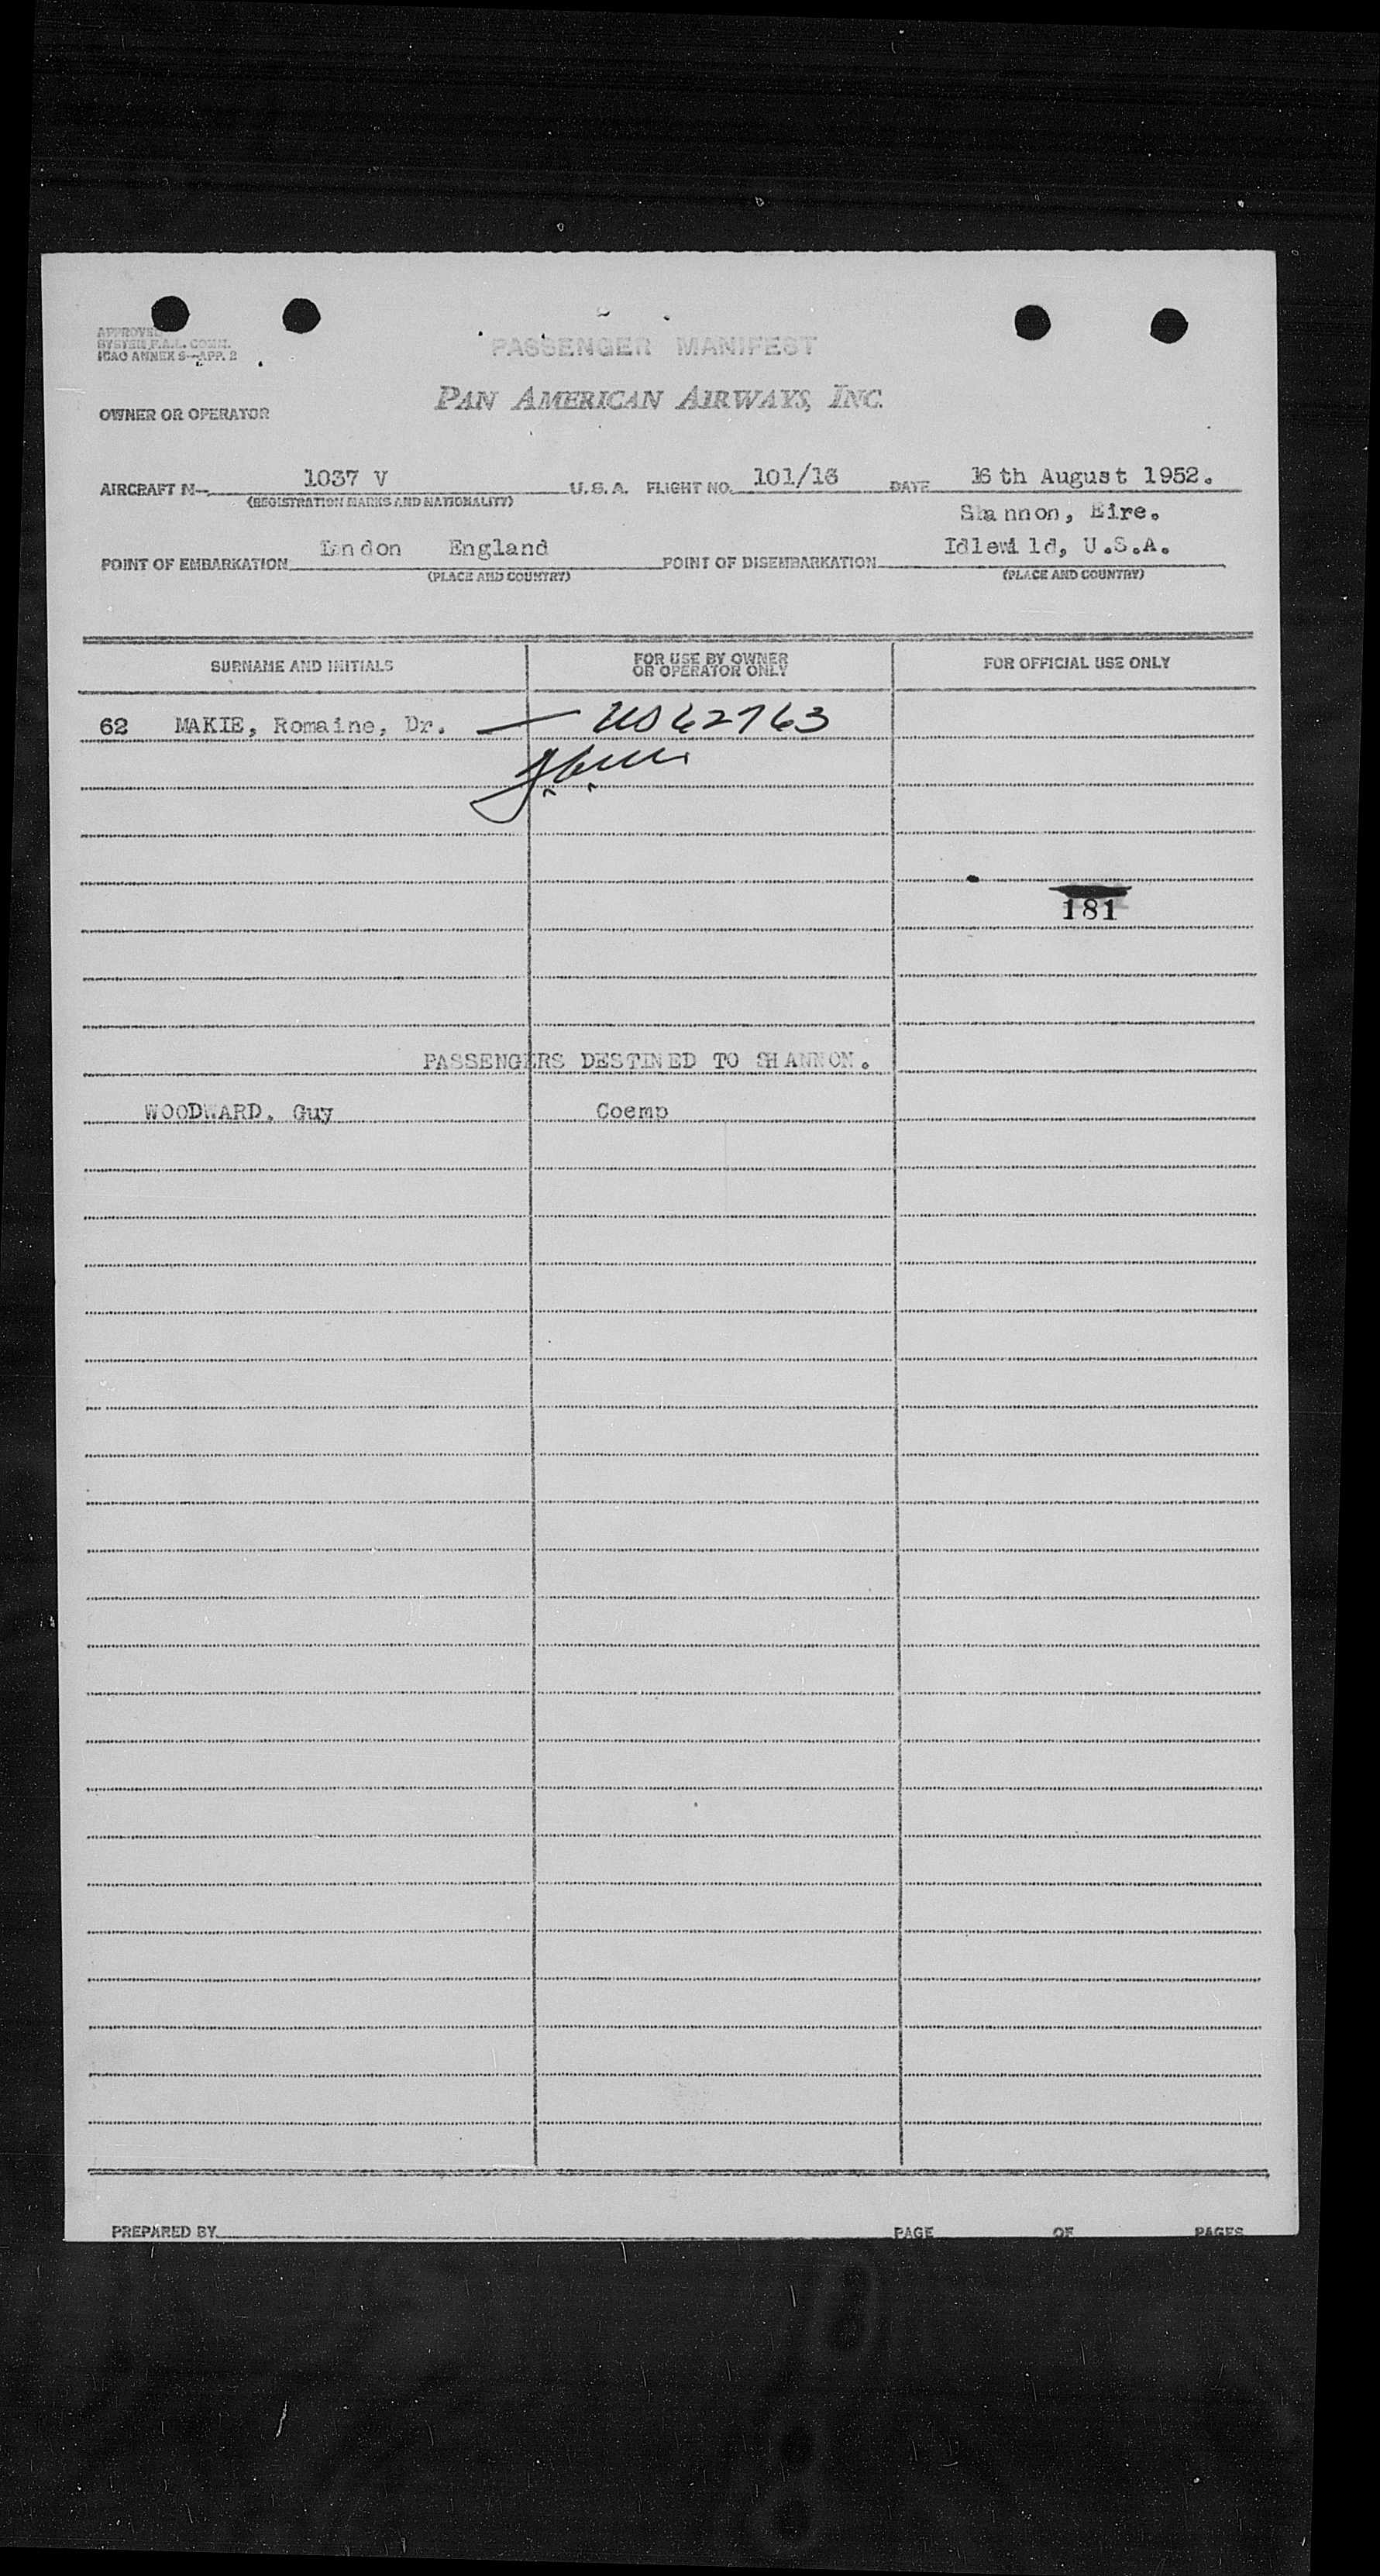 APPROVED
SYSTEM P.A.L. COMM.
ICAO ANNEX 9—APP. 2
PASSENGER MANIFEST
PAN AMERICAN AIRWAYS, INC.
OWNER OR OPERATOR
AIRCRAFT N— 1037 V U.S.A. FLIGHT NO. 101/16 DATE 16 th August 1952.
(REGISTRATION MARKS AND NATIONALITY)
Shannon, Eire.
POINT OF EMBARKATION London England POINT OF DISEMBARKATION Idlewild, U.S.A.
(PLACE AND COUNTRY) (PLACE AND COUNTRY)
SURNAME AND INITIALS FOR USE BY OWNER OR OPERATOR ONLY FOR OFFICIAL USE ONLY
62 MAKIE, Romaine, Dr. — US 62763
181
PASSENGERS DESTINED TO SHANNON.
WOODWARD, Guy Coemp
PREPARED BY PAGE OF PAGES